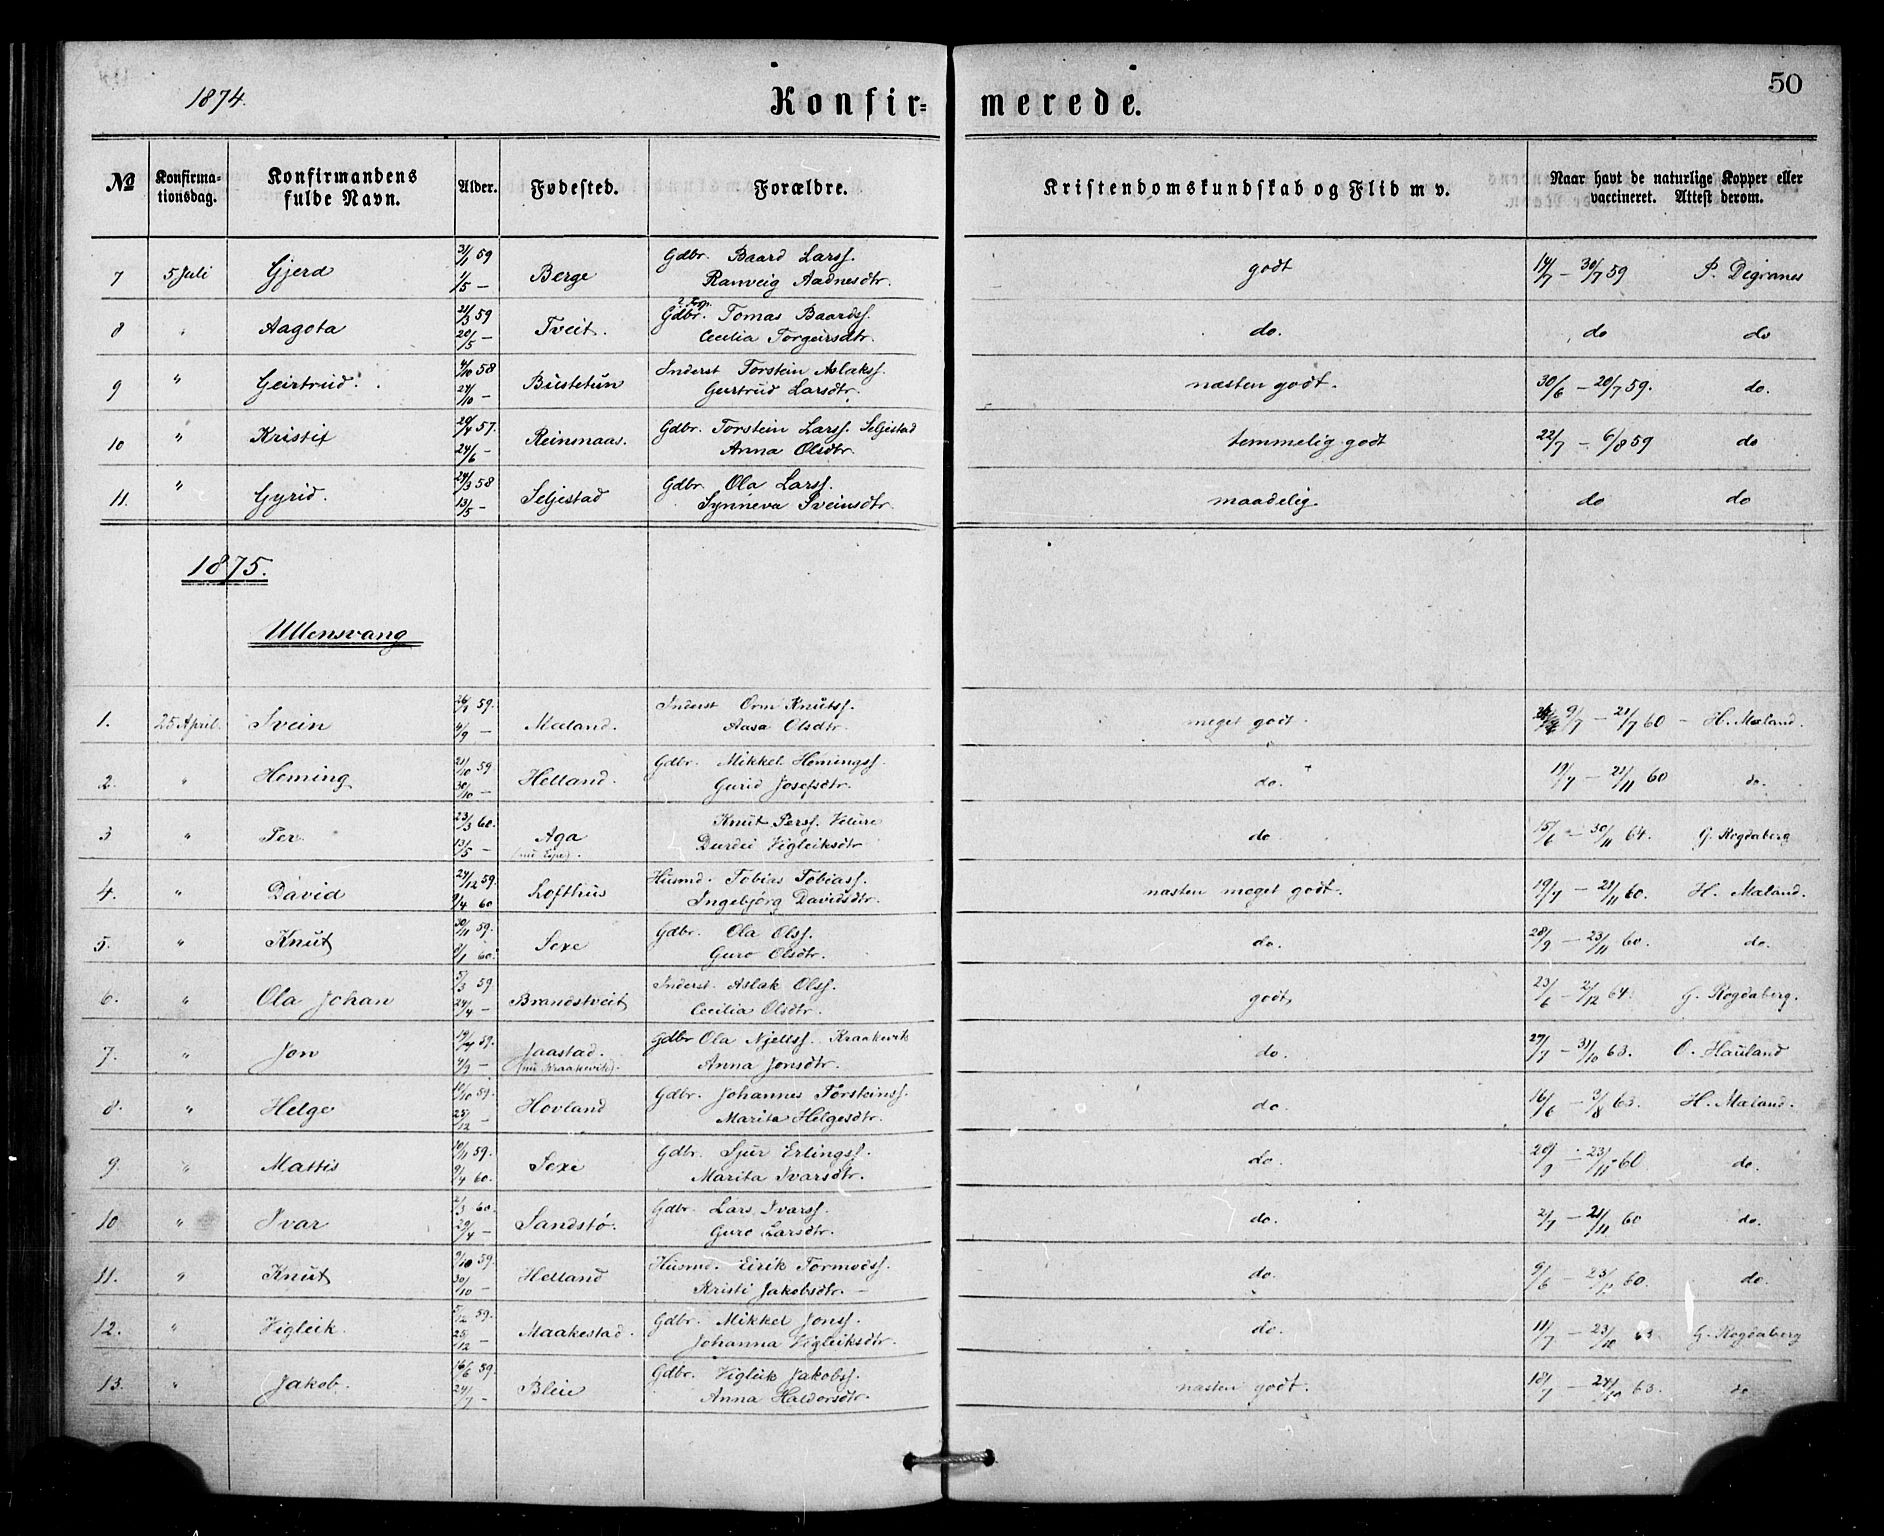 1874.
Konfir=
merede.
50
№
Konfirma-
tionsdag.
Konfirmandens
fulde Navn.
Alder.
Fødested.
Forældre.
Kristendomskundskab og Flid m v.
Naar havt de naturlige Kopper eller
vaccineret. Attest derom.
31/1 59 Gdbr. Baard Larss.
7 5 Juli Gjerd Berge godt 14/7 – 30/7 59 P. Digranes
1/5 – Ranveig Aadnesdtr.
21/3 59 Gdbr. Tomas Baardss.
8 " Aagota Tveit. do. do do
20/5 – Cecilia Torgeirsdtr.
4/10 58 Inderst Torstein Aslakss.
9 " Geirtrud. Bustetun næsten godt. 30/6 – 20/7 59. do.
24/10 – Geirtrud Larsdtr.
20/4 57. Gdbr. Torstein Larss. Seljestad
10 " Kristi Reinsnaas. temmelig godt 22/7 – 6/8 59 do
24/6 – Anna Olsdtr.
24/3 58 Gdbr. Ola Larss.
11. " Gyrid. Seljestad maadelig. do do
13/5 – Synneva Sveinsdtr.
1875.
Ullensvang
26/7 59. Inderst Orm Knutss.
1. 25 April. Svein Mæland. meget godt. 9/7 – 21/7 60 – H. Mæland.
4/9 – Aasa Olsdtr.
21/10 59 Gdbr. Mikkel Hemingss.
2. " Heming Helland. do. 19/7 – 21/11 60 do.
30/10 – Gurid Josefsdtr.
23/3 60. Knut Perss. Velure
3 " Per. Aga do 15/6 – 30/11 64. G. Rogdaberg
13/5 – (nu Espe). Durdei Vigleiksdtr
24/12 59. Husmd. Tobias Tobiass.
4. " David Lofthus næsten meget godt. 19/7 – 21/11 60. H. Mæland.
9/4 60 Ingebjørg Davidsdtr.
30/11 59. Gdbr. Ola Olss.
5. " Knut Sexe do. 28/9 – 23/11 60. do.
8/1 60. Guro Olsdtr.
5/3 59 Inderst. Aslak Olss.
6. " Ola Johan Brandstveit godt 23/6 – 2/12 64. G. Rogdaberg.
24/4 – Cecilia Olsdtr.
19/7 59. Gdbr Ola Njelss. Kraakevik
7. " Jon Jaastad. do. 27/7 – 31/10 63. O. Hauland
4/9 – (nu Kraakevik). Anna Jonsdtr.
10/10 59. Gdbr. Johannes Torsteinss.
8. " Helge Hovland do. 16/6 – 3/8 63. H. Mæland.
25/12 – Marita Helgesdtr.
10/11 59. Gdbr. Sjur Erlingss.
9. " Mattis Sexe do. 20/9 – 23/11 60 do.
9/4 60. Marita Ivarsdtr.
2/3 60. Gdbr. Lars Ivarss.
10 " Ivar Sandstø. do. 2/7 – 21/11 60 do.
29/4 – Guro Larsdtr.
9/10 59. Husmd. Eirik Tormodss.
11. " Knut Helland do. 9/6 – 23/11 60. do.
30/10 – Kristi Jakobsdtr. –
5/12 59. Gdbr. Mikkel Jonss.
12. " Vigleik. Maakestad. do. 11/7 – 23/10 63. G. Rogdaberg
25/12 – Johanna Vigleiksdtr.
16/6 59. Gdbr. Vigleik Jakobss.
13. " Jakob. Bleie næsten godt. 18/7 – 24/10 63. do
24/7 – Anna Haldorsdtr.